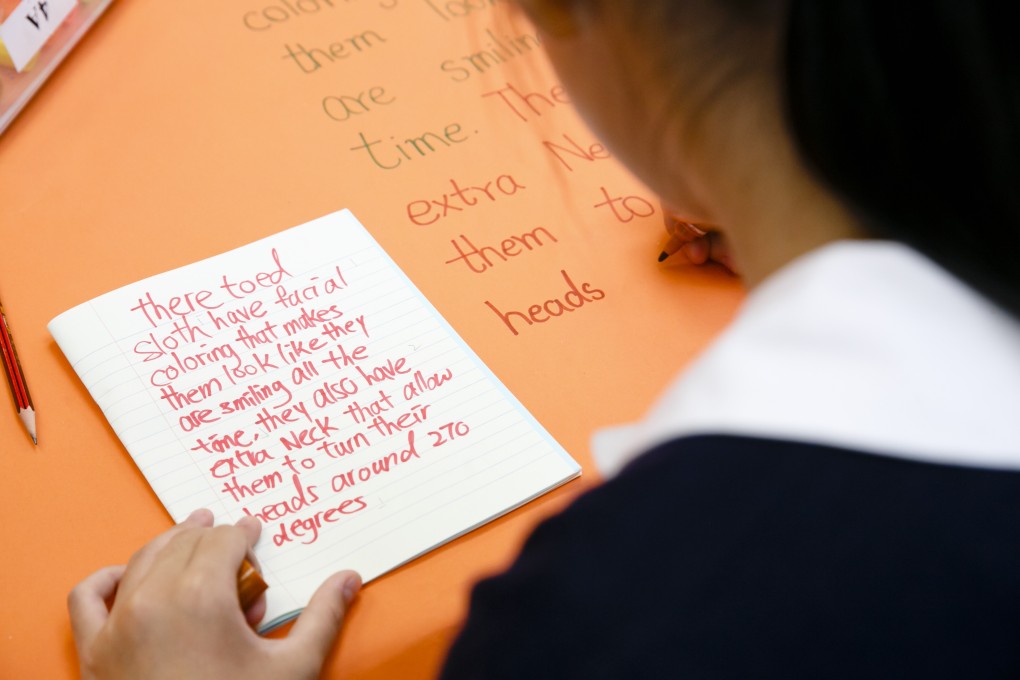 there toed
sloth have facial
coloring that makes
them look like they
are smiling all the
time, they also have
extra Neck that allow
them to turn their
heads around 270
degrees
them
are smilin
time. The
extra Ne
them to
heads